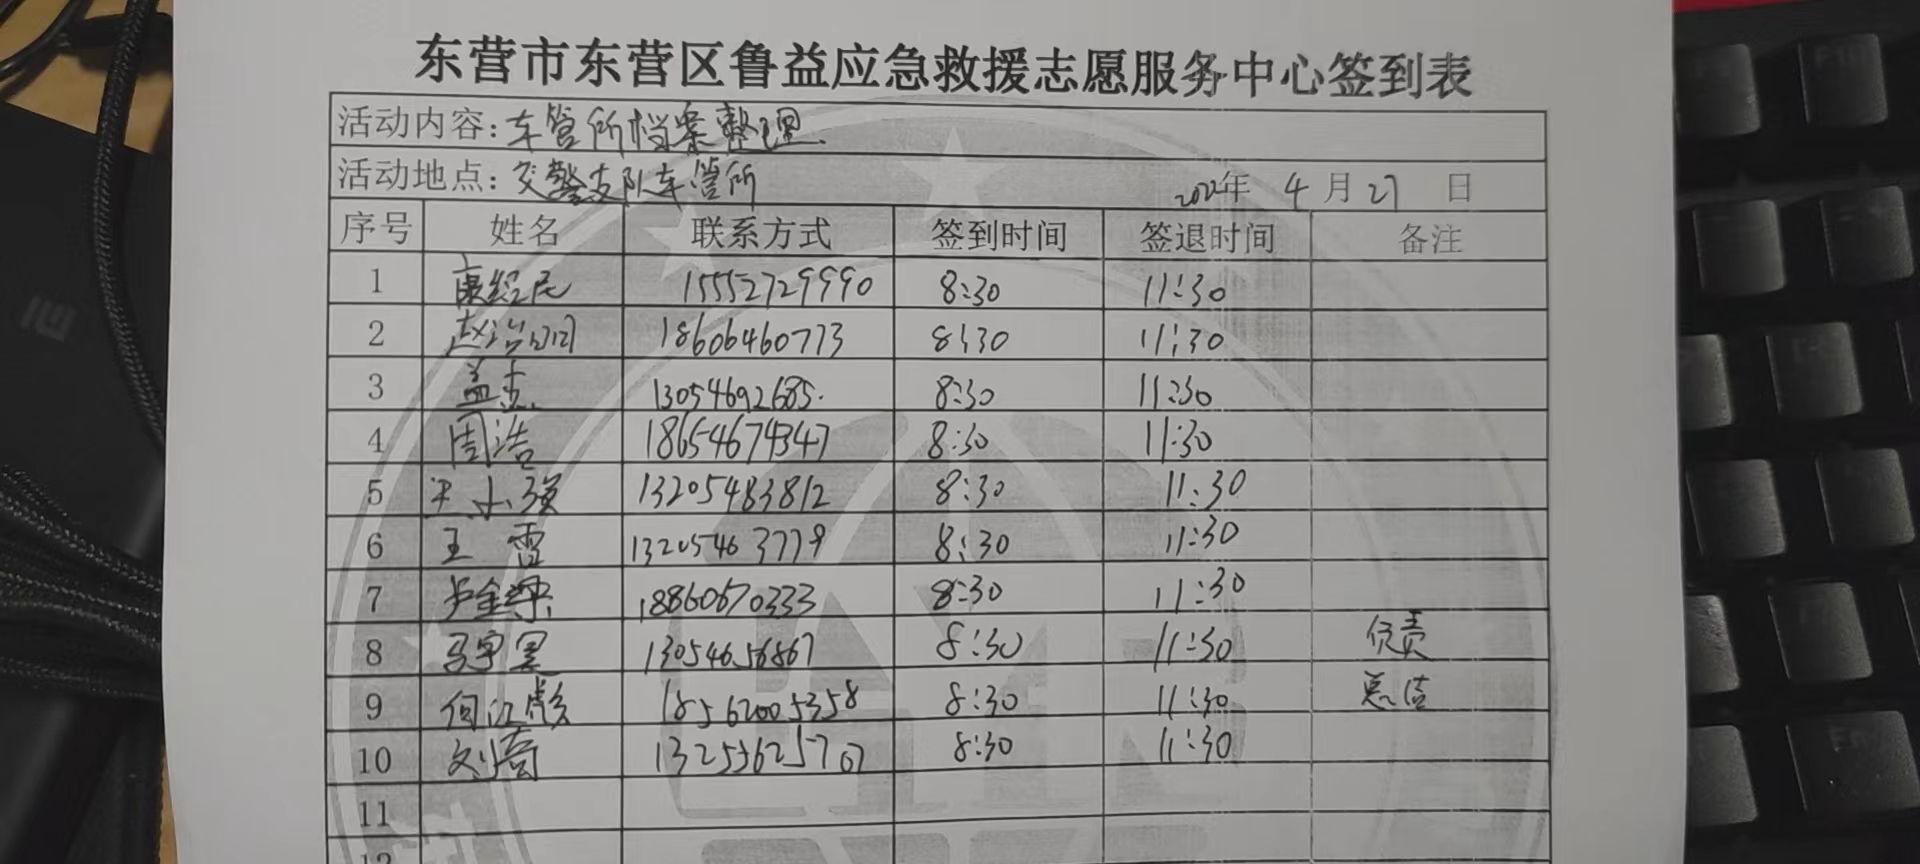 东营市东营区鲁益应急救援志愿服务中心签到表
活动内容：车管所档案整理.
活动地点：交警支队车管所 2022年 4月27日
序号 姓名 联系方式 签到时间 签退时间 备注
1 康经民 15552729990 8:30 11:30
2 赵治 18606460773 8:30 11:30
3 盖志 13054692685. 8:30 11:30
4 周浩 18654674347 8:30 11:30
5 小强 13205483812 8:30 11:30
6 王雪 13205463779 8:30 11:30
7 卢金梁 18860670333 8:30 11:30
8 马宇星 13054656867 8:30 11:30 负责
9 何江彪 18562005358 8:30 11:30
10 刘奇 13255625707 8:30 11:30
11
12